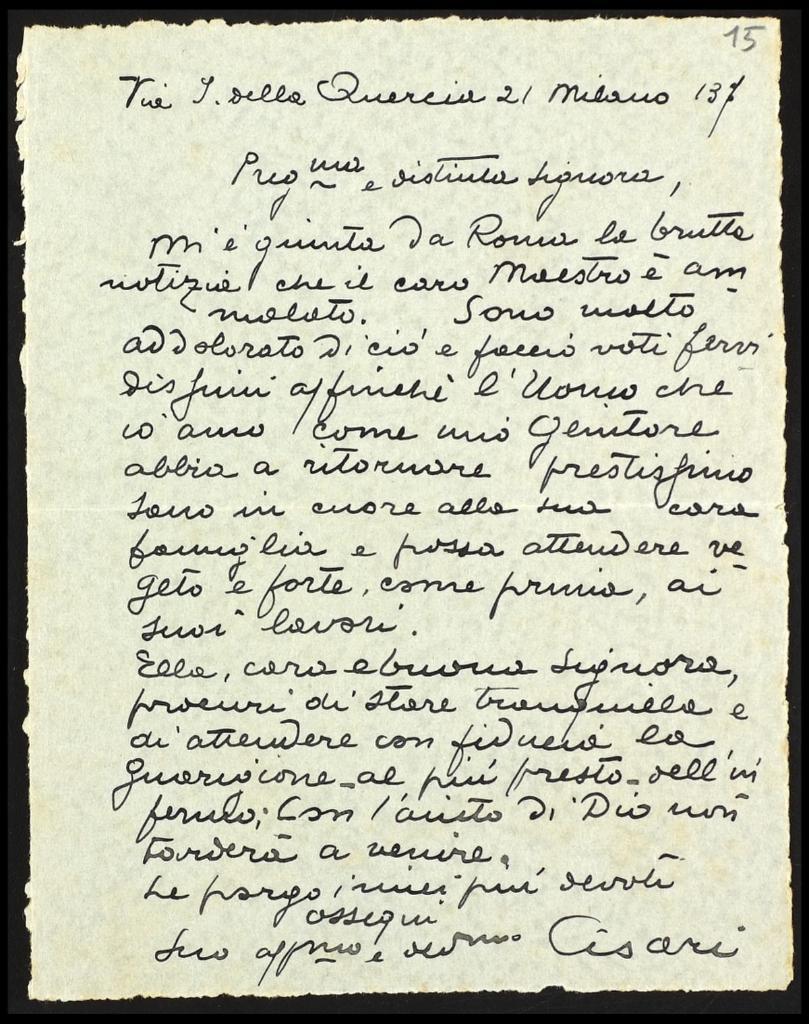 15
Via J. della Quercia 21 Milano 137
Preg ma e distinta signora,
Mi è giunta da Roma la brutta
notizia che il caro Maestro è am
malato. Sono molto
addolorato di ciò e faccio voti fervi
dissimi affinchè l'Uomo che
io amo come mio Genitore
abbia a ritornare prestissimo
sano in cuore alla sua cara
famiglia e possa attendere ve
geto e forte, come prima, ai
suoi lavori.
Ella, cara e buona Signora,
procuri di stare tranquilla e
di attendere con fiducia la
guarigione - al più presto - dell'in
fermo; Con l'aiuto di Dio non
tarderà a venire.
Le porgo i miei più devoti
ossequi
Suo aff mo e dev mo Cisari